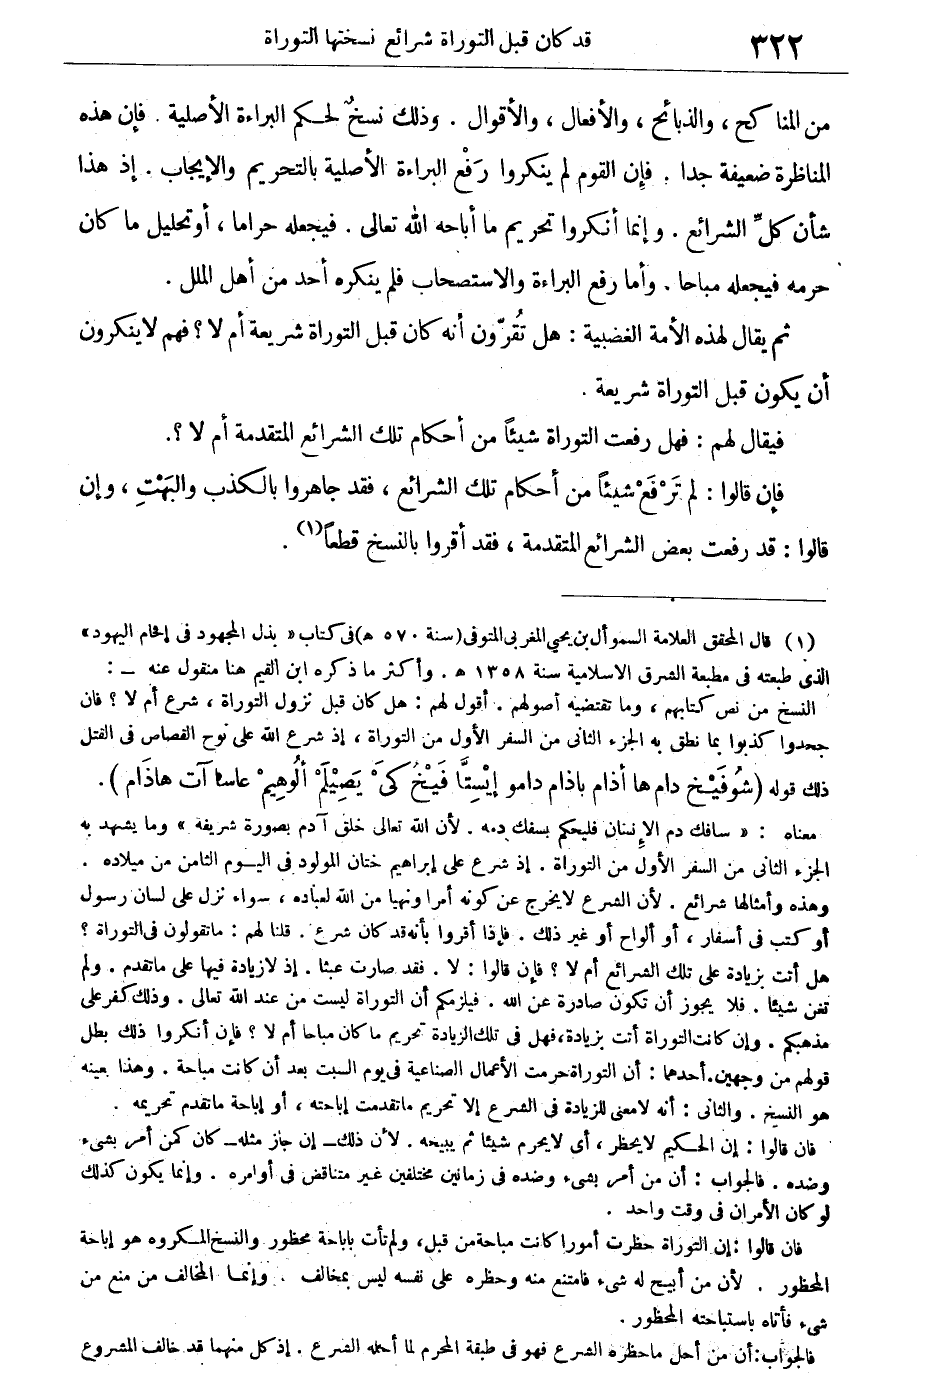 ٣٢٢
قد كان قبل التوراة شرائع نسختها التوراة
من المناكح ، والذبائح ، والأفعال ، والأقوال . وذلك نسخٌ لحكم البراءة الأصلية . فإن هذه
المناظرة ضعيفة جدا . فإن القوم لم ينكروا رَفْع البراءة الأصلية بالتحريم والإيجاب . إذ هذا
شأن كلِّ الشرائع . وإنما أنكروا تحريم ما أباحه الله تعالى . فيجعله حراما ، أو تحليل ما كان
حرمه فيجعله مباحا . وأما رفع البراءة والاستصحاب فلم ينكره أحد من أهل الملل .
ثم يقال لهذه الأمة الغضبية : هل تُقرّون أنه كان قبل التوراة شريعة أم لا ؟ فهم لاينكرون
أن يكون قبل التوراة شريعة .
فيقال لهم : فهل رفعت التوراة شيئاً من أحكام تلك الشرائع المتقدمة أم لا ؟.
فإن قالوا : لم تَرْفَعْ شيئاً من أحكام تلك الشرائع ، فقد جاهروا بالكذب والبَهْتِ ، وإن
قالوا : قد رفعت بعض الشرائع المتقدمة ، فقد أقروا بالنسخ قطعاً(١) .
(١) قال المحقق العلامة السموأل بن يحيى المغربى المتوفى (سنة ٥٧٠ ه) فى كتاب « بذل المجهود فى إفحام اليهود »
الذى طبعته فى مطبعة الشرق الاسلامية سنة ١٣٥٨ ه . وأكثر ما ذكره ابن القيم هنا منقول عنه ـــ :
النسخ من نص كتابهم ، وما تقتضيه أصولهم . أقول لهم : هل كان قبل نزول التوراة ، شرع أم لا ؟ فان
جحدوا كذبوا بما نطق به الجزء الثانى من السفر الأول من التوراة ، إذ شرع الله على نوح القصاص فى القتل
ذلك قوله (شُوفَيْخ دام ها أذام باذام دامو إيْسِتَّا فَيْخُ كَىْ يَصِيْلَمْ ألُوهِيمْ عاسا آت هاذَام ) .
معناه : « سافك دم الإنسان فليحكم بسفك دمه . لأن الله تعالى خلق آدم بصورة شريفة » وما يشهد به
الجزء الثانى من السفر الأول من التوراة . إذ شرع على إبراهيم ختان المولود فى اليوم الثامن من ميلاده .
وهذه وأمثالها شرائع . لأن الشرع لايخرج عن كونه أمرا ونهيا من الله لعباده ، سواء نزل على لسان رسول
أو كتب فى أسفار ، أو ألواح أو غير ذلك . فاذا أقروا بأنه قد كان شرع . قلنا لهم : ماتقولون فى التوراة ؟
هل أتت بزيادة على تلك الشرائع أم لا ؟ فإن قالوا : لا . فقد صارت عبثا . إذ لازيادة فيها على ماتقدم . ولم
تغن شيئا . فلا يجوز أن تكون صادرة عن الله . فيلزمكم أن التوراة ليست من عند الله تعالى . وذلك كفر على
مذهبكم . وإن كانت التوراة أتت بزيادة، فهل فى تلك الزيادة تحريم ما كان مباحا أم لا ؟ فإن أنكروا ذلك بطل
قولهم من وجهين. أحدهما : أن التوراة حرمت الأعمال الصناعية فى يوم السبت بعد أن كانت مباحة . وهذا بعينه
هو النسخ . والثانى : أنه لامعنى للزيادة فى الشرع إلا تحريم ماتقدمت إباحته ، أو إباحة ماتقدم تحريمه .
فان قالوا : إن الحكيم لايحظر ، أى لايحرم شيئا ثم يبيحه . لأن ذلك ــ إن جاز مثله ــ كان كمن أمر بشىء
وضده . فالجواب : أن من أمر بشىء وضده فى زمانين مختلفين غير متناقض فى أوامره . وإنما يكون كذلك
لو كان الأمران فى وقت واحد .
فان قالوا : إن التوراة حظرت أمورا كانت مباحة من قبل، ولم تأت باباحة محظور والنسخ المكروه هو إباحة
المحظور . لأن من أبيح له شىء فامتنع منه وحظره على نفسه ليس بمخالف . وإنما المخالف من منع من
شىء فأتاه باستباحته المحظور .
فالجواب : أن من أحل ماحظره الشرع فهو فى طبقة المحرم لما أحله الشرع . إذ كل منهما قد خالف المشروع